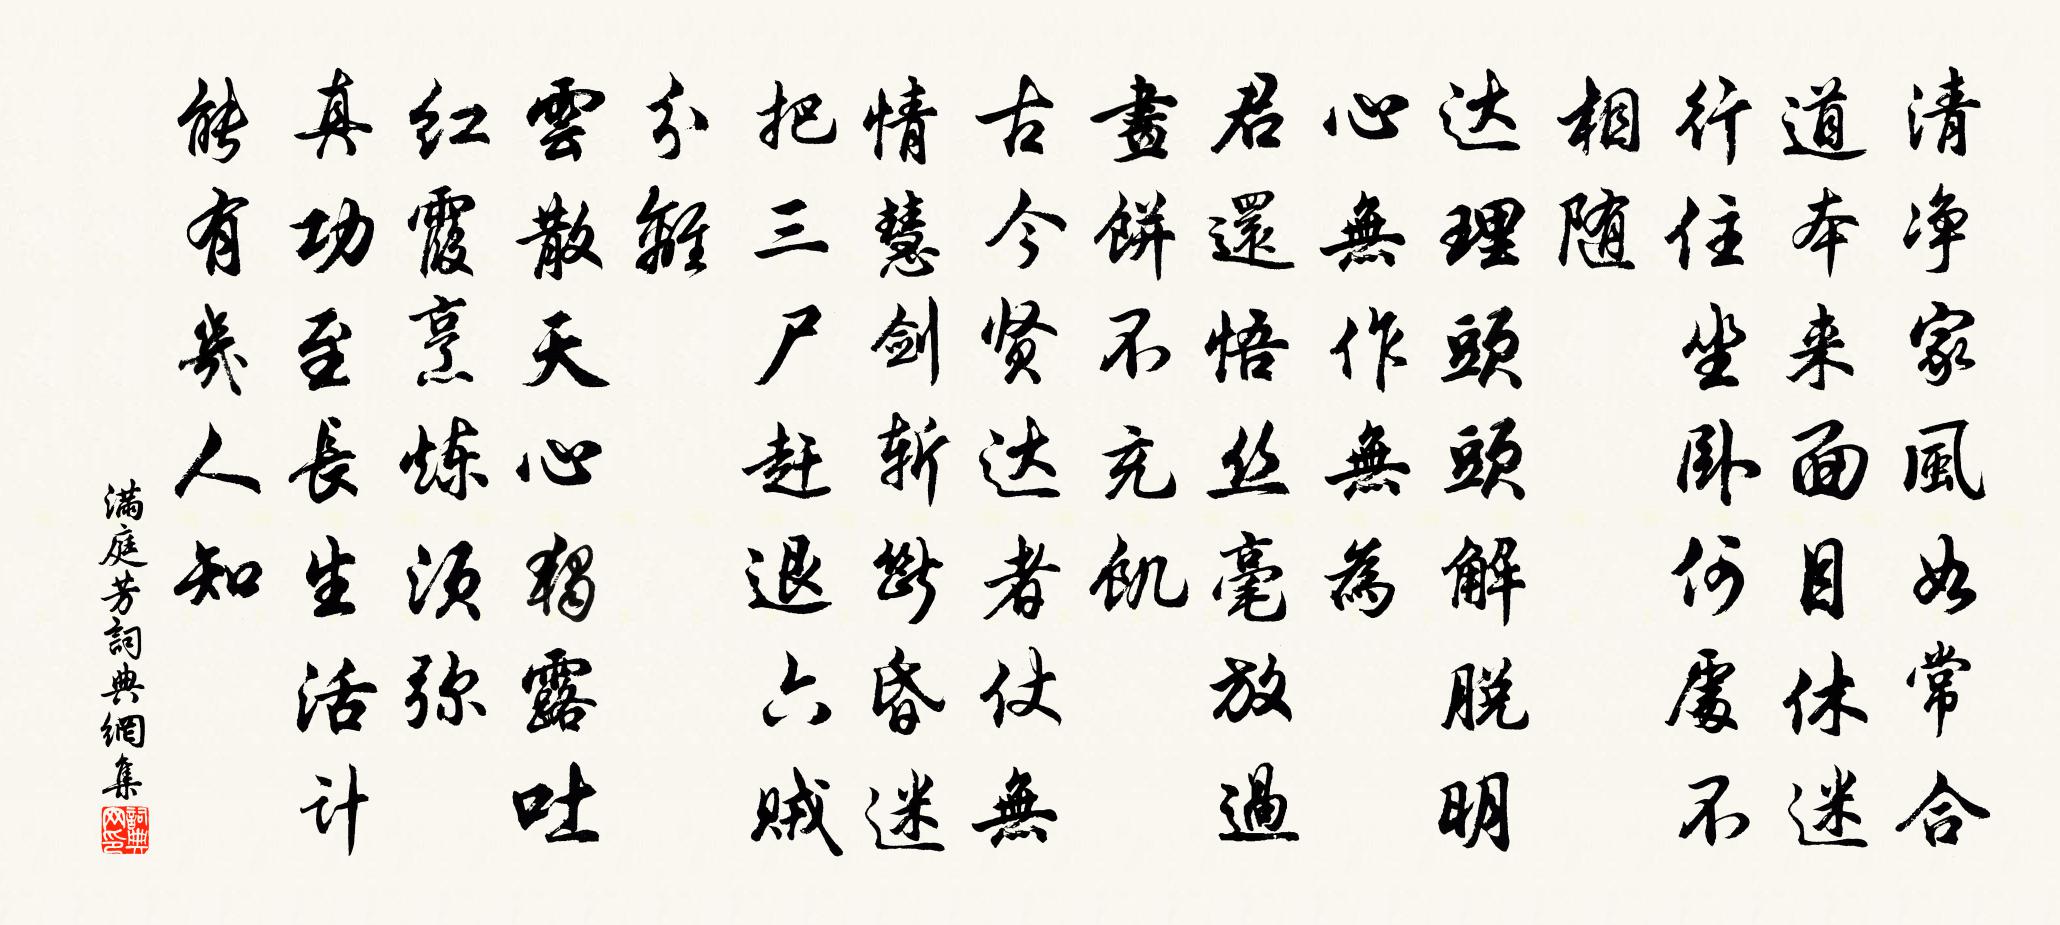 清净家風如常合
道本来面目休迷
行住坐卧何處不
相随
达理頭頭解脱明
心無作無為
君還悟丝毫放過
畫餅不充飢
古今贤达者仗無
情慧剑斩斷昏迷
把三尸赶退六贼
分離
雲散天心独露吐
红霞烹炼须弥
真功至長生活计
能有幾人知
满庭芳詞典網集
詞典网印